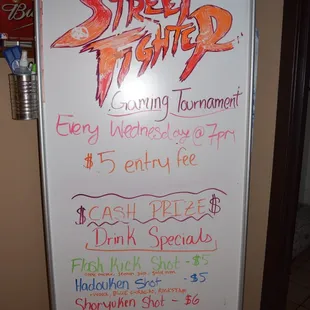 Bu
STREET
FIGHTER
Gaming Tournament
Every Wednesdays @ 7pm
$5 entry fee
$CASH PRIZE$
Drink Specials
Flash Kick Shot - $5
Hadouken Shot - $5
Shoryuken Shot - $6